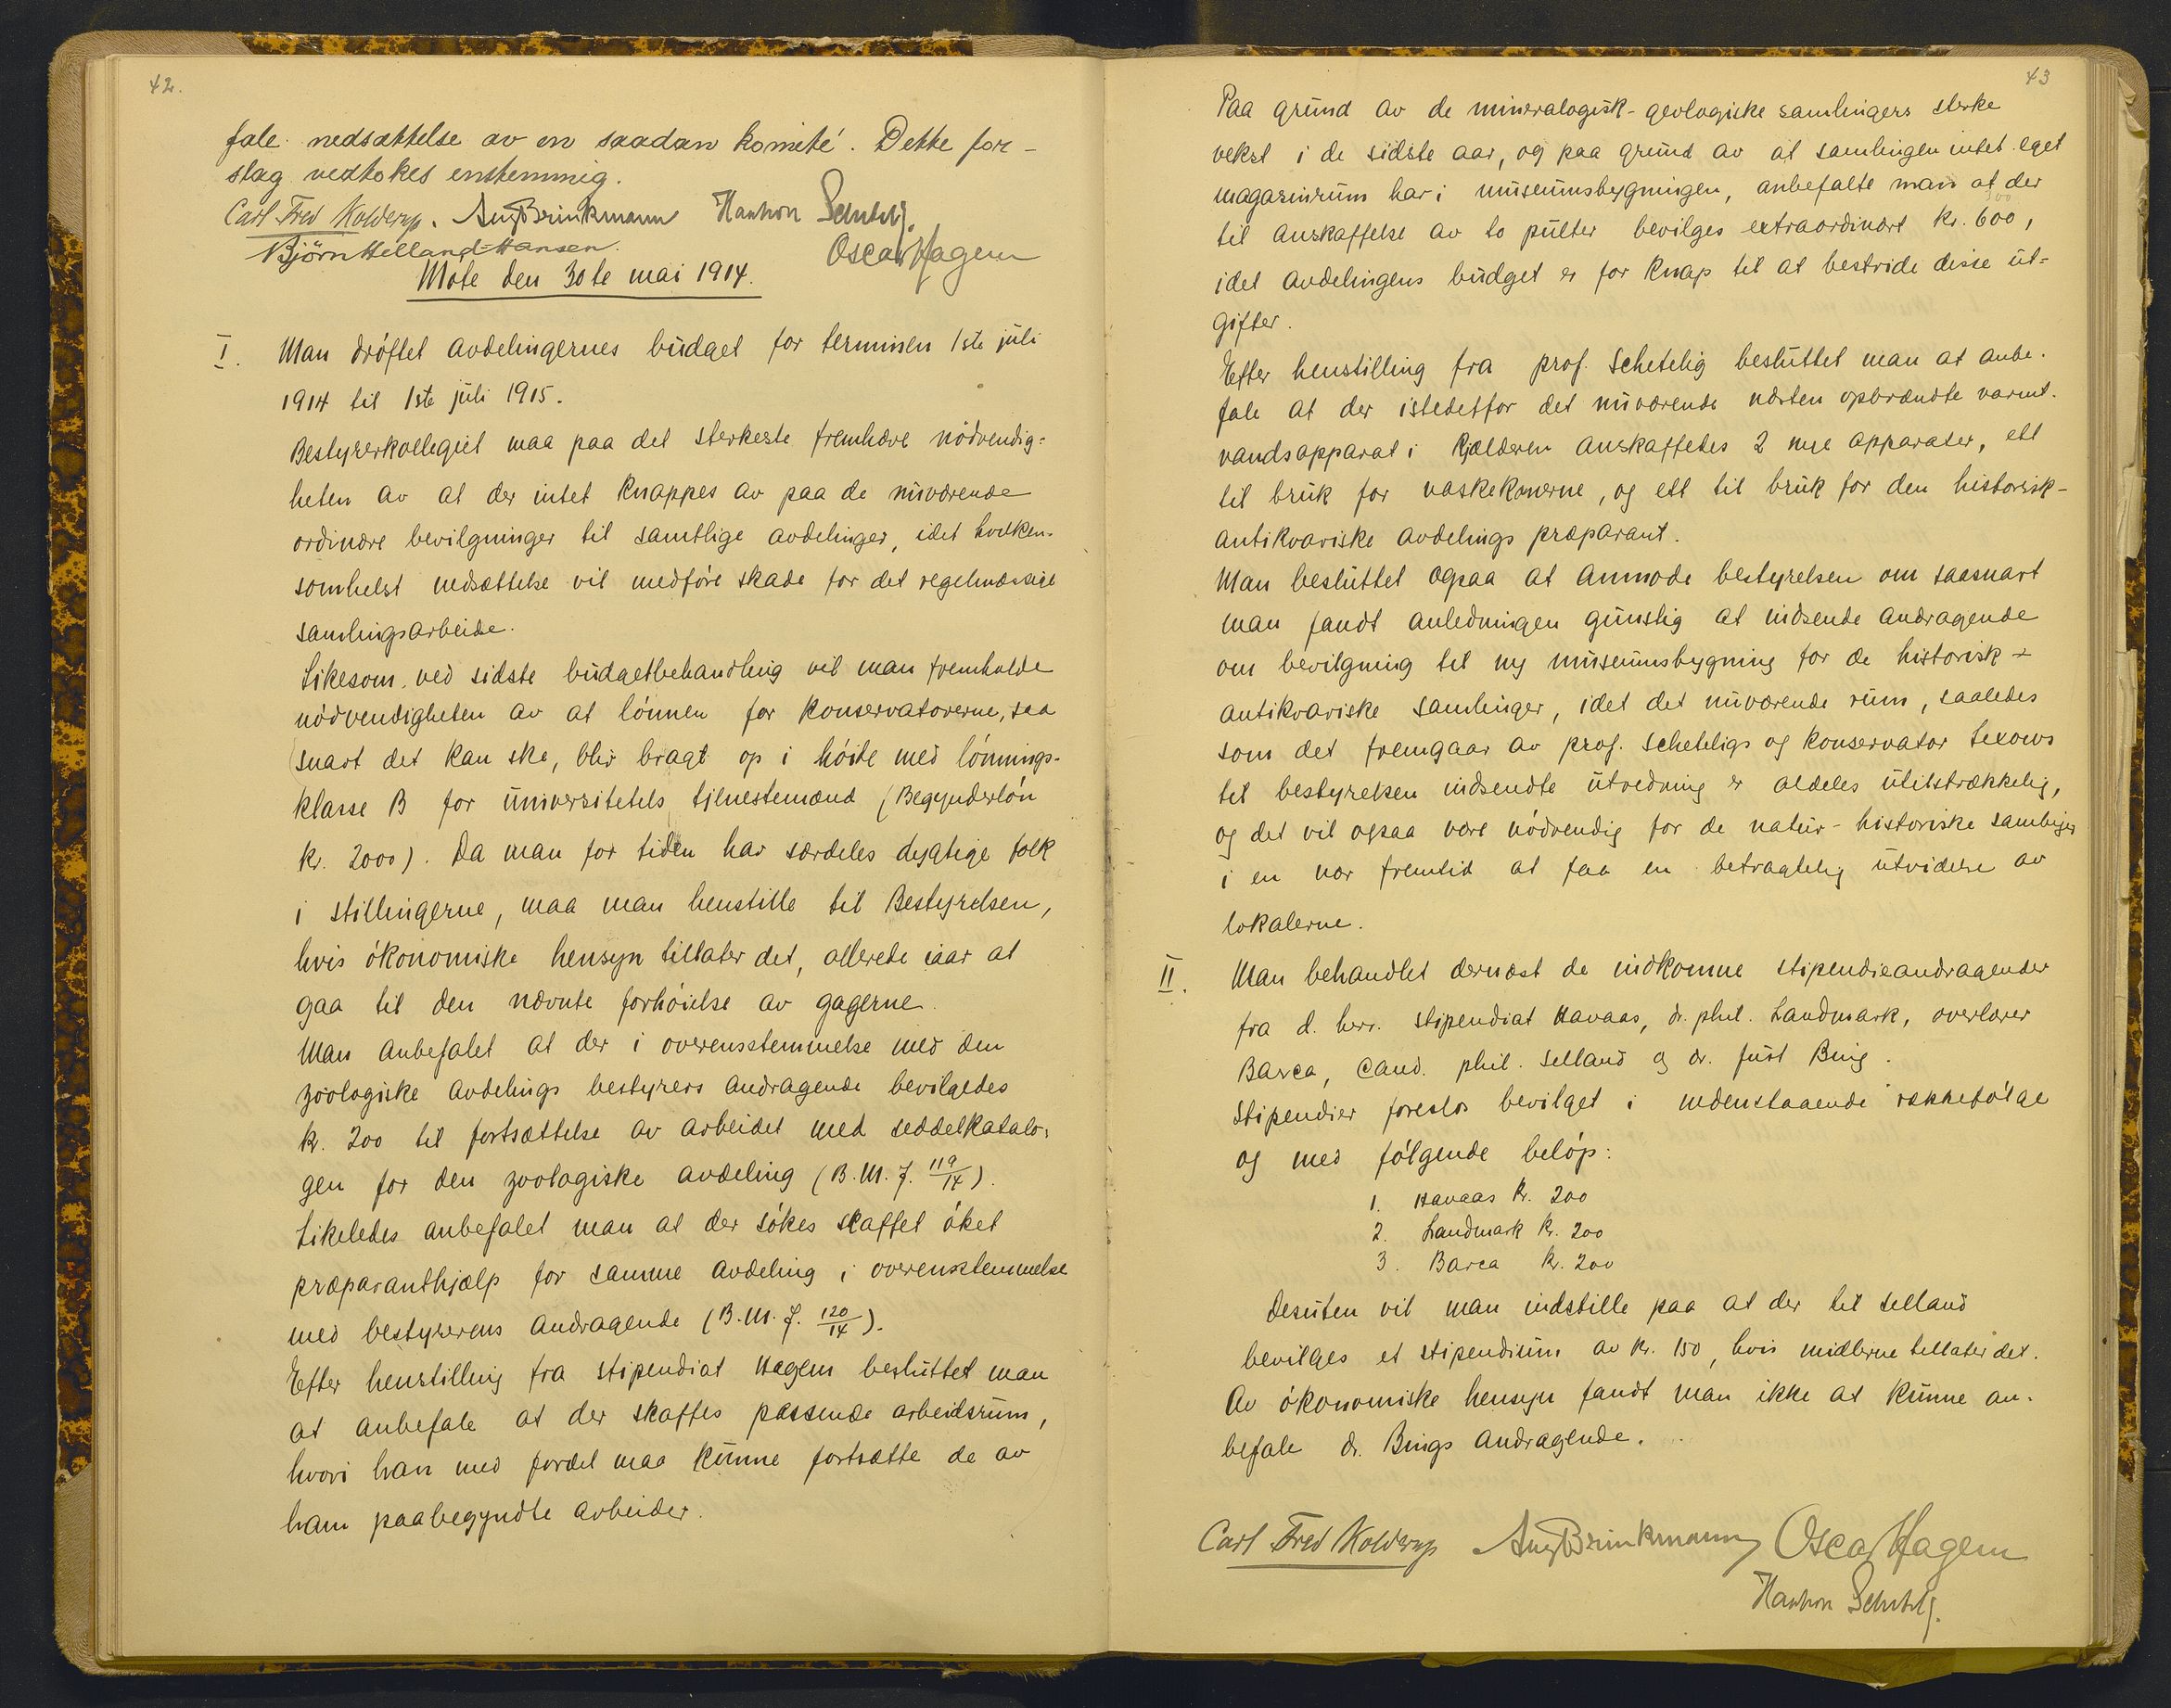 42.
fale nedsættelse av en saadan komité. Dette for-
slag vedtokes enstemmig.
Carl Fred Kolderup. Aug Brinkmann Haakon Schetelig.
Bjørn Helland-Hansen. Oscar Hagem
Møte den 30te mai 1914.
I. Man drøftet avdelingernes budget for terminen 1ste juli
1914 til 1ste juli 1915.
Bestyrerkollegiet maa paa det sterkeste fremhæve nødvendig=
heten av at der intet knappes av paa de nuværende
ordinære bevilgninger til samtlige avdelinger, idet hvilken-
somhelst nedsættelse vil medføre skade for det regelmæssige
samlingsarbeide.
Likesom ved sidste budgetbehandling vil man fremholde
nødvendigheten av at lønnen for konservatorerne, saa
snart det kan ske, blir bragt op i høide med lønnings-
klasse B for universitetets tjenestemænd (Begynderløn
kr. 2000). Da man for tiden har særdeles dygtige folk
i stillingerne, maa man henstille til Bestyrelsen,
hvis økonomiske hensyn tillater det, allerede iaar at
gaa til den nævnte forhøielse av gagerne.
Man anbefalet at der i overensstemmelse med den
zoologiske avdelings bestyrers andragende bevilgedes
kr. 200 til fortsættelse av arbeidet med seddelkatalo=
gen for den zoologiske avdeling (B.M.J. 119/14).
Likeledes anbefalet man at der søkes skaffet øket
præparanthjælp for samme avdeling i overensstemmelse
med bestyrerens andragende (B.M.J. 120/14).
Efter henstilling fra stipendiat Hagem besluttet man
at anbefale at der skaffes passende arbeidsrum,
hvori han med fordel maa kunne fortsætte de av
ham paabegyndte arbeider.
43
Paa grund av de mineralogisk-geologiske samlingers sterke
vekst i de sidste aar, og paa grund av at samlingen intet eget
magasinrum har i museumsbygningen, anbefalte man at der
til anskaffelse av to pulter bevilges extraordinært kr. 600,
idet avdelingens budget er for knap til at bestride disse ut=
gifter.
Efter henstilling fra prof. Schetelig besluttet man at anbe-
fale at der istedetfor det nuværende næsten opbrændte varmt-
vandsapparat i kjælderen anskaffedes 2 nye apparater, ett
til bruk for vaskekonerne, og ett til bruk for den historisk-
antikvariske avdelings præparant.
Man besluttet ogsaa at anmode bestyrelsen om saasnart
man fandt anledningen gunstig at indsende andragende
om bevilgning til ny museumsbygning for de historisk-
antikvariske samlinger, idet det nuværende rum, saaledes
som det fremgaar av prof. Scheteligs og konservator Lexows
til bestyrelsen indsendte utredning er aldeles utilstrækkelig,
og det vil ogsaa være nødvendig for de natur-historiske samlinger
i en nær fremtid at faa en betragtelig utvidelse av
lokalerne.
II. Man behandlet dernæst de indkomne stipendieandragender
fra d. herr. stipendiat Havaas, dr. phil. Landmark, overlærer
Barca, cand. phil. Selland og dr. Just Bing.
Stipendier foreslos bevilget i nedenstaaende rækkefølge
og med følgende beløp:
1. Havaas kr. 200
2. Landmark kr. 200
3. Barca kr. 200
Desuten vil man indstille paa at der til Selland
bevilges et stipendium av kr. 150, hvis midlerne tillater det.
Av økonomiske hensyn fandt man ikke at kunne an-
befale dr. Bings andragende.
Carl Fred Kolderup Aug Brinkmann Oscar Hagem
Haakon Schetelig.